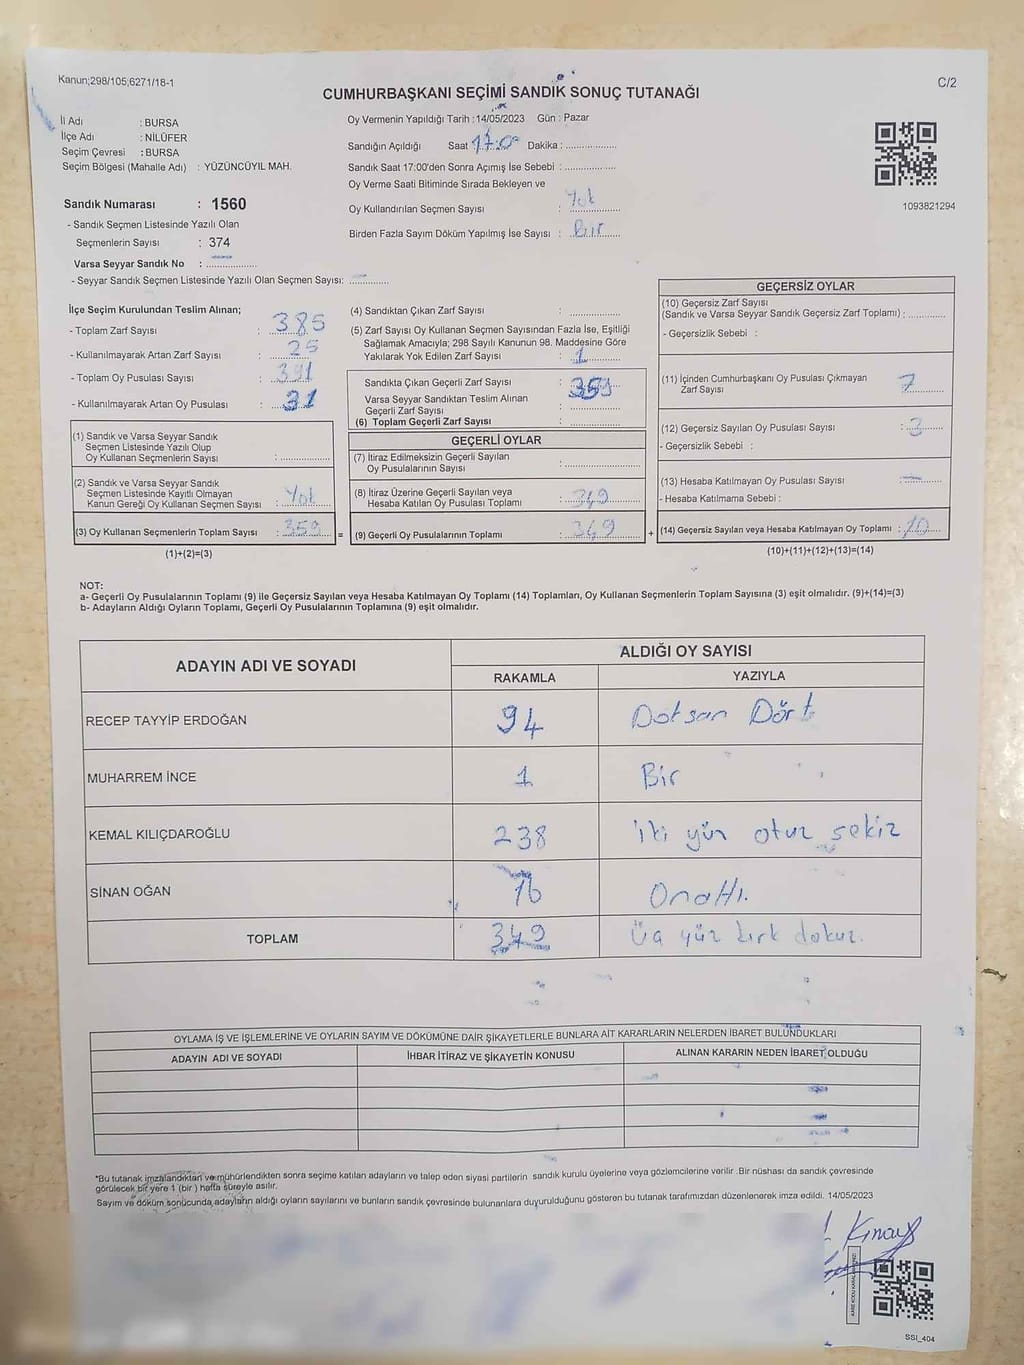 Kanun;298/105,6271/18-1
C/2
CUMHURBAŞKANI SEÇİMİ SANDIK SONUÇ TUTANAĞI
İl Adı : BURSA
İlçe Adı : NİLÜFER
Seçim Çevresi : BURSA
Seçim Bölgesi (Mahalle Adı) : YÜZÜNCÜYIL MAH.
Oy Vermenin Yapıldığı Tarih :14/05/2023 Gün : Pazar
Sandığın Açıldığı Saat 17:0 Dakika :
Sandık Saat 17:00'den Sonra Açımış İse Sebebi :
Oy Verme Saati Bitiminde Sırada Bekleyen ve
Oy Kullandırılan Seçmen Sayısı : Yok
Birden Fazla Sayım Döküm Yapılmış İse Sayısı : bir
1093821294
Sandık Numarası : 1560
- Sandık Seçmen Listesinde Yazılı Olan
Seçmenlerin Sayısı : 374
Varsa Seyyar Sandık No :
- Seyyar Sandık Seçmen Listesinde Yazılı Olan Seçmen Sayısı:
İlçe Seçim Kurulundan Teslim Alınan;
- Toplam Zarf Sayısı : 385
- Kullanılmayarak Artan Zarf Sayısı : 25
- Toplam Oy Pusulası Sayısı : 391
- Kullanılmayarak Artan Oy Pusulası : 31
(1) Sandık ve Varsa Seyyar Sandık
Seçmen Listesinde Yazılı Olup
Oy Kullanan Seçmenlerin Sayısı :
(2) Sandık ve Varsa Seyyar Sandık
Seçmen Listesinde Kayıtlı Olmayan
Kanun Gereği Oy Kullanan Seçmen Sayısı : Yok
(3) Oy Kullanan Seçmenlerin Toplam Sayısı : 359 =
(1)+(2)=(3)
(4) Sandıktan Çıkan Zarf Sayısı :
(5) Zarf Sayısı Oy Kullanan Seçmen Sayısından Fazla İse, Eşitliği
Sağlamak Amacıyla; 298 Sayılı Kanunun 98. Maddesine Göre
Yakılarak Yok Edilen Zarf Sayısı : 1
Sandıkta Çıkan Geçerli Zarf Sayısı : 359
Varsa Seyyar Sandıktan Teslim Alınan
Geçerli Zarf Sayısı :
(6) Toplam Geçerli Zarf Sayısı :
GEÇERLİ OYLAR
(7) İtiraz Edilmeksizin Geçerli Sayılan
Oy Pusulalarının Sayısı :
(8) İtiraz Üzerine Geçerli Sayılan veya
Hesaba Katılan Oy Pusulası Toplamı : 349
(9) Geçerli Oy Pusulalarının Toplamı : 349 +
GEÇERSİZ OYLAR
(10) Geçersiz Zarf Sayısı
(Sandık ve Varsa Seyyar Sandık Geçersiz Zarf Toplamı) :
- Geçersizlik Sebebi :
(11) İçinden Cumhurbaşkanı Oy Pusulası Çıkmayan
Zarf Sayısı : 7
(12) Geçersiz Sayılan Oy Pusulası Sayısı : 3
- Geçersizlik Sebebi :
(13) Hesaba Katılmayan Oy Pusulası Sayısı :
- Hesaba Katılmama Sebebi :
(14) Geçersiz Sayılan veya Hesaba Katılmayan Oy Toplamı : 10
(10)+(11)+(12)+(13)=(14)
NOT:
a- Geçerli Oy Pusulalarının Toplamı (9) ile Geçersiz Sayılan veya Hesaba Katılmayan Oy Toplamı (14) Toplamları, Oy Kullanan Seçmenlerin Toplam Sayısına (3) eşit olmalıdır. (9)+(14)=(3)
b- Adayların Aldığı Oyların Toplamı, Geçerli Oy Pusulalarının Toplamına (9) eşit olmalıdır.
ADAYIN ADI VE SOYADI
ALDIĞI OY SAYISI
RAKAMLA YAZIYLA
RECEP TAYYİP ERDOĞAN 94 Dotsan Dört
MUHARREM İNCE 1 Bir
KEMAL KILIÇDAROĞLU 238 iki yün otuz sekiz
SİNAN OĞAN 16 Onaltı.
TOPLAM 349 Üa yüz kırk dokuz.
OYLAMA İŞ VE İŞLEMLERİNE VE OYLARIN SAYIM VE DÖKÜMÜNE DAİR ŞİKAYETLERLE BUNLARA AİT KARARLARIN NELERDEN İBARET BULUNDUKLARI
ADAYIN ADI VE SOYADI İHBAR İTİRAZ VE ŞİKAYETİN KONUSU ALINAN KARARIN NEDEN İBARET OLDUĞU
*Bu tutanak imzalandıktan ve mühürlendikten sonra seçime katılan adayların ve talep eden siyasi partilerin sandık kurulu üyelerine veya gözlemcilerine verilir .Bir nüshası da sandık çevresinde
görülecek bir yere 1 (bir ) hafta süreyle asılır.
Sayım ve döküm sonucunda adayların aldığı oyların sayılarını ve bunların sandık çevresinde bulunanlara duyurulduğunu gösteren bu tutanak tarafımızdan düzenlenerek imza edildi. 14/05/2023
Kınay
SSI_404